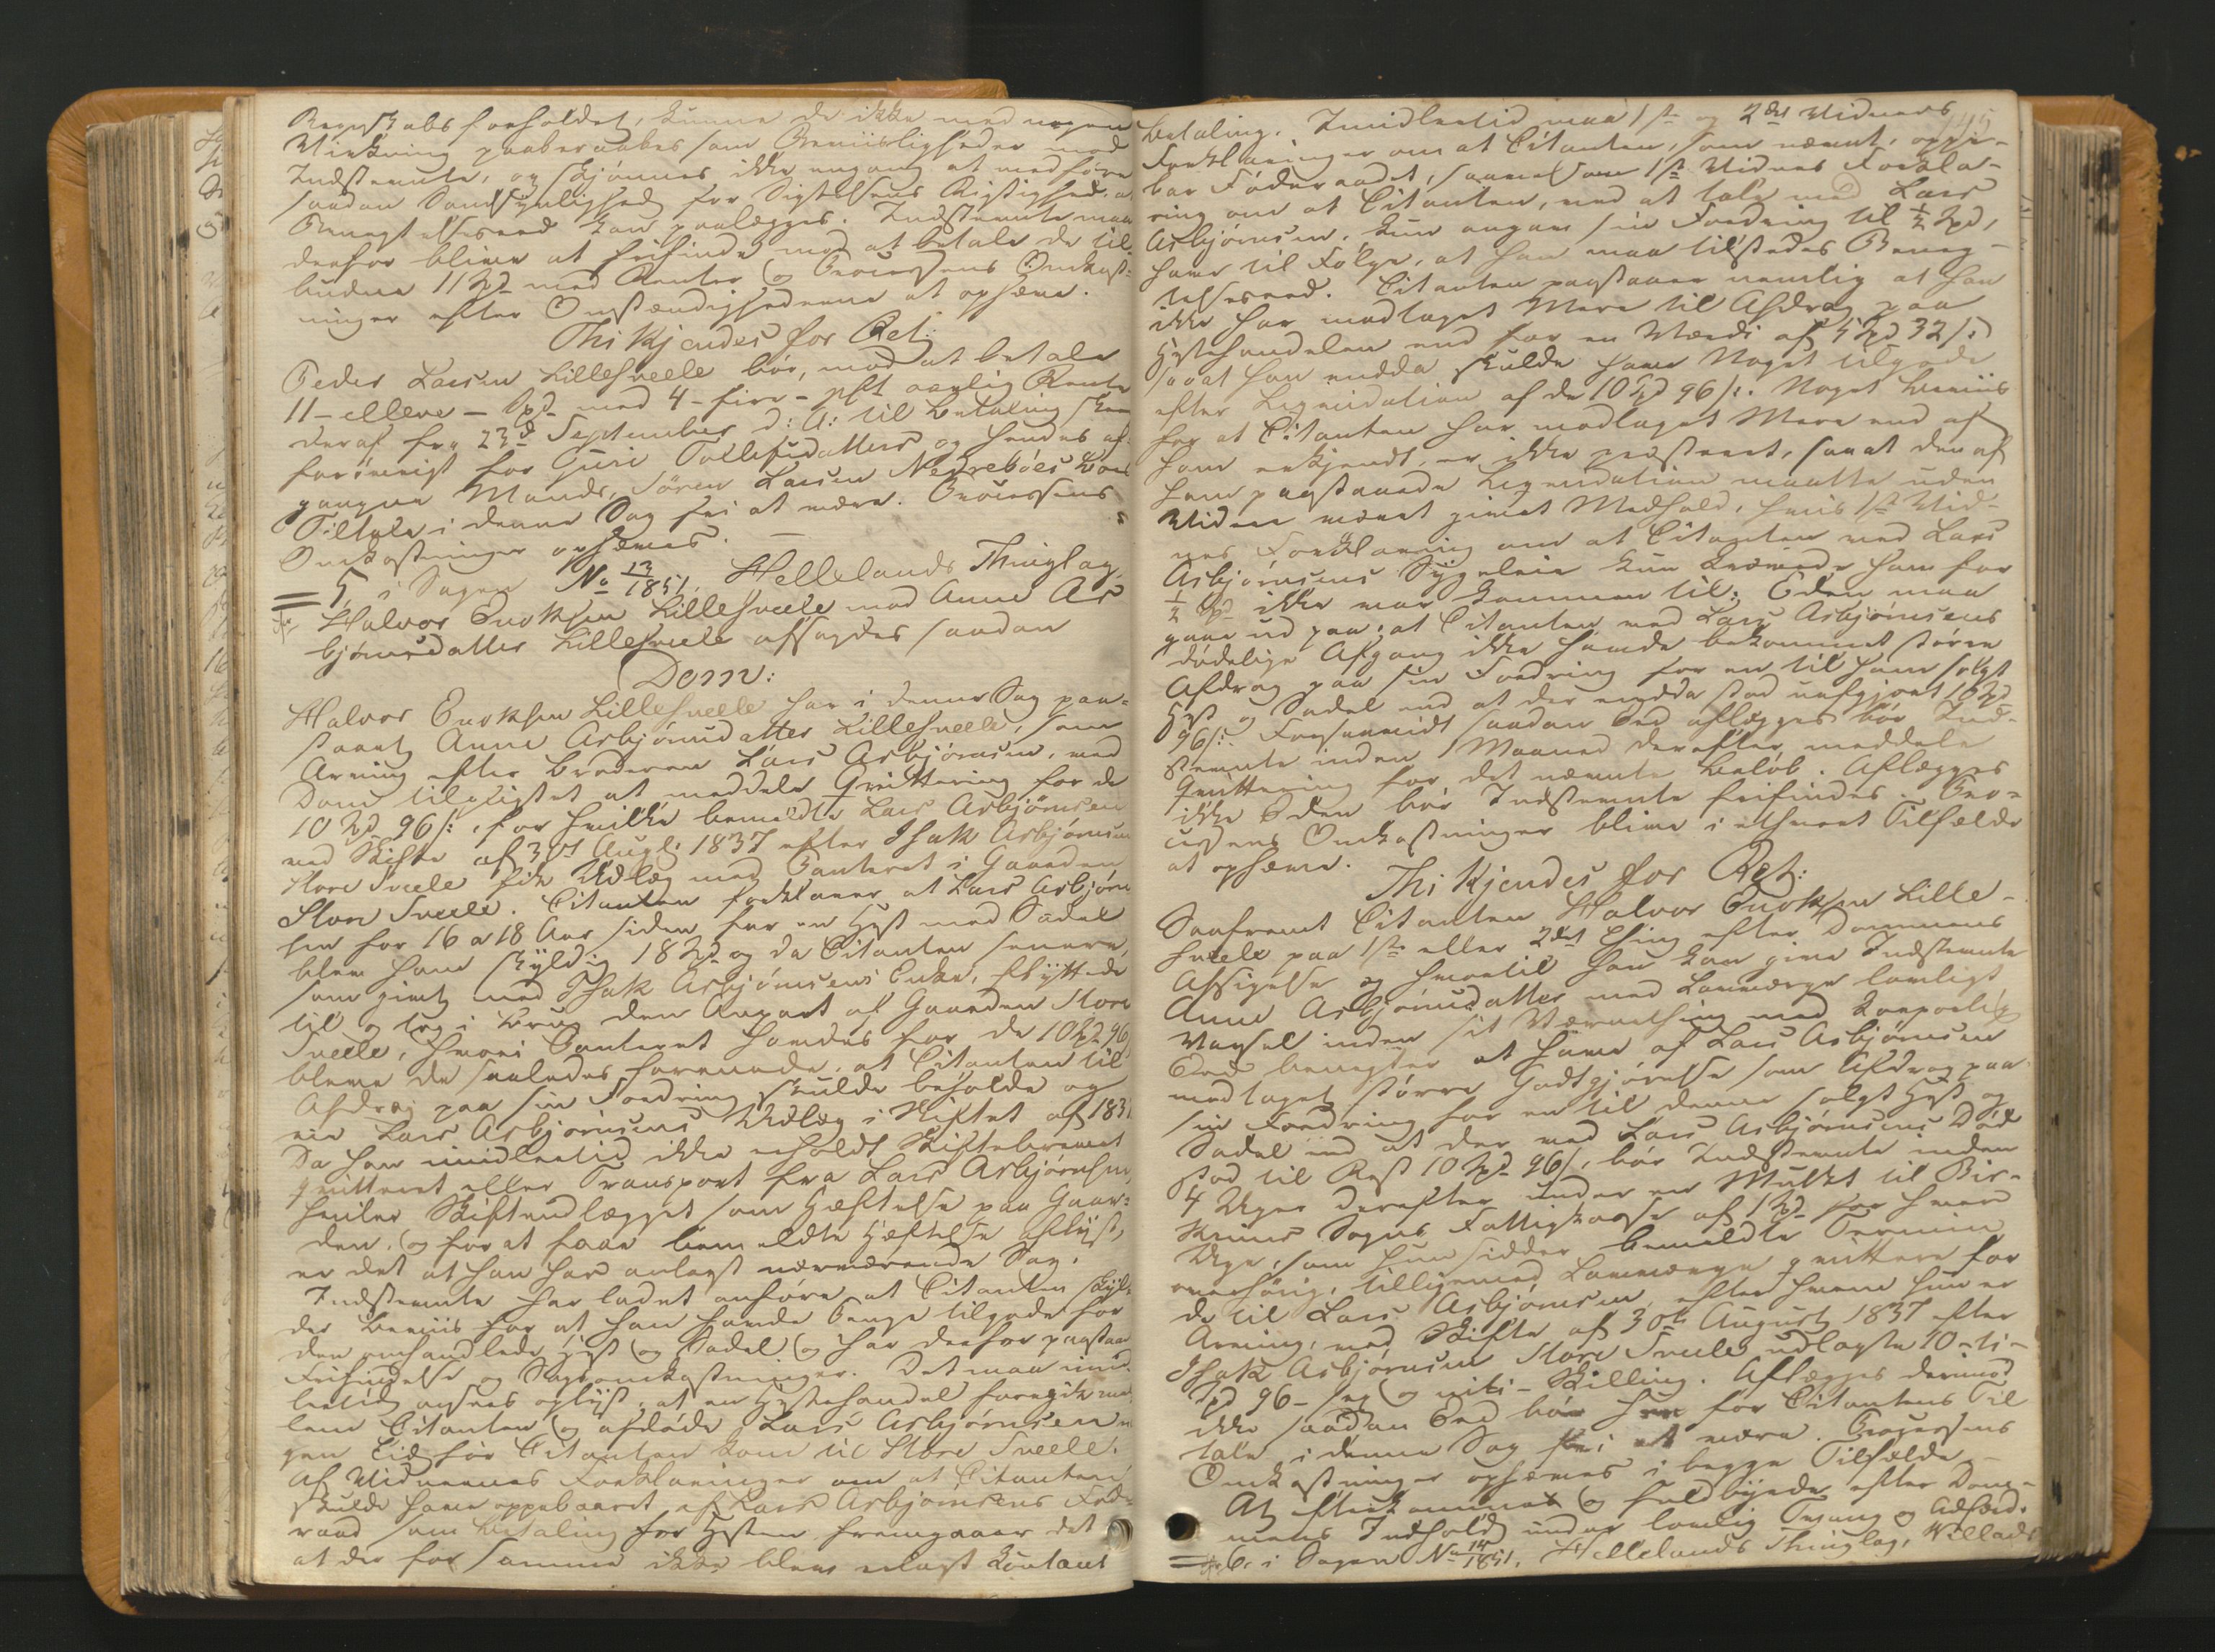 Regnskabsforholdet, kunne de ikke med nogen
Virkning paaberaabes som Beviisligheder mod
Indstevnte, og skjønnes ikke engang at medføre
saadan Sandsynlighed for Sigtelsens Rigtighed, at
Benegtelseseed kan paalægges. Indstevnte maa
derfor blive at frifinde mod at betale de til-
budne 11 Spd med Renter og Processens Omkost-
ninger efter Omstændighederne at ophæve.
Thi Kjendes for Ret:
Peder Larsen Lillesveele bør, mod at betale
11 - elleve - Spd med 4 - fire - pCt aarlig Rente
deraf fra 23de September d: A: til Betaling skeer
forøvrigt for Guri Tollefsdatters og hendes af-
gangne Mands, Sören Larsen Nedreböes
Tiltale i denne Sag fri at være. Processens
Omkostninger ophæves. —
5, i Sagen No 13/1851, Hellelands Thinglag,
Halvor Enoksen Lillesveele mod Anne As-
bjørnsdatter Lillesveele afsagdes saadan
Dom:
Halvor Enoksen Lillesveele har i denne Sag paa-
staaet Anne Asbjørnsdatter Lillesveele, som
Arving efter Broderen Lars Asbjørnsen, ved
Dom tilpligtet at meddele Qvittering for de
10 Spd 96 s:, for hvilke bemeldte Lars Asbjørnsen
ved Skifte af 30te Augt: 1837 efter Isak Asbjørnsen
Store Sveele fik Udlæg med Panteret i Gaarden
Store Sveele. Citanten forklarer at Lars Asbjørn-
sen for 16 a 18 Aar siden for en Hest med Sadel
blev ham skyldig 18 Spd og da Citanten senere,
som givt med Isak Asbjørnsens Enke, flyttede
til og tog i Brug den Anpart af Gaarden Store
Sveele, hvori Panteret havdes for de 10 Spd 96 s
bleve de saaledes forenede, at Citanten til
Afdrag paa sin Fordring skulde beholde og
eie Lars Asbjørnsens Udlæg i Skiftet af 1837
Da han imidlertid ikke erholdt Skiftebrevet
qvitteret eller Transport fra Lars Asbjørnsen,
hviler Skifteudlægget som Hæftelse paa Gaar-
den, og for at faae bemeldte Hæftelse aflyst,
er det at han har anlagt nærværende Sag.
Indstevnte har ladet anføre at Citanten skyl-
der Beviis for at han havde Penge tilgode for
den omhandlede Hest og Sadel og har derfor paastaaet
Frifindelse og Sagsomkostninger. Det maa imid-
lertid ansees oplyst, at en Hestehandel foregik mel-
lem Citanten og afdøde Lars Asbjørnsen no-
gen Tid før Citanten kom til Store Sveele.
Af Vidnernes Forklaringer om at Citanten
skulde have oppebaaret af Lars Asbjørnsens Føde-
raad som Betaling for Hesten fremgaaer det
at der for samme ikke blev erlagt Contant
Betaling. Imidlertid maa 1ste og 2det Vidnes
Forklaringer om at Citanten, som nævnt, oppe-
bar Föderaadet, saavelsom 1ste Vidnes Forkla-
ring om at Citanten, ved at tale med Lars
Asbjørnsen, kun angav sin Fordring til ½ Spd,
have til Følge, at han maa tilstedes Beneg-
telseseed. Citanten paastaaer nemlig at han
ikke har modtaget Mere til Afdrag paa
Hestehandelen end for en Værdi af 5 Spd 32 s:
saaat han endda skulde have Noget tilgode
efter Liqvidation af de 10 Spd 96 s:. Noget Beviis
for at Citanten har modtaget Mere end af
ham erkjendt, er ikke præsteret, saaat den af
ham paastaaede Liqvidation maatte uden
Videre været givet Medhold, hvis 1ste Vid-
nes Forklaring om at Citanten ved Lars
Asbjørnsens Sygeleie kun krævede ham for
½ Spd ikke var kommen til. Eden maa
gaae ud paa, at Citanten ved Lars Asbjørnsens
dödelige Afgang ikke havde bekommet større
Afdrag paa sin Fordring for en til ham solgt
Hest og Sadel end at der endda stod uafgjort 10 Spd
96 s:. Forsaavidt saadan Eed aflægges bør Ind-
stevnte inden 1 Maaned derefter meddele
Qvittering for det nævnte Beløb. Aflægges
ikke Eden bør Indstevnte frifindes. Pro-
cessens Omkostninger blive i ethvert Tilfælde
at ophæve.
Thi Kjendes for Ret:
Saafremt Citanten Halvor Enoksen Lille-
sveele paa 1ste eller 2det Thing efter Dommens
Afsigelse og hvortil han kan give Indstevnte
Anne Asbjørnsdatter med Laugværge lovligt
Varsel inden sit Værnething med korporlig
Eed benegter at have af Lars Asbjørnsen
modtaget större Godtgjörelse som Afdrag paa
sin Fordring for en til denne solgt Hest og
Sadel end at der ved Lars Asbjørnsens Död
stod til Rest 10 Spd 96 s, bør Indstevnte inden
4 Uger derefter under en Mulkt til Bir-
krems Sogns Fattigkasse af 1 Spd for hver
Uge, som hun sidder bemeldte Termin
overhørig, tilligemed Laugværge qvittere for
de til Lars Asbjørnsen, efter hvem hun er
Arving, ved Skifte af 30te August 1837 efter
Isak Asbjørnsen Store Sveele udlagte 10 - ti -
Spd 96 - sex og niti - Skilling. Aflægges derimod
ikke saadan Eed bør hun for Citantens Til
tale i denne Sag fri at være. Processens
Omkostninger ophæves i begge Tilfælde.
At efterkommes og fuldbyrdes efter Dom-
mens Indhold under lovlig Tvang og Adfærd.
6, i Sagen No 14/1851, Hellelands Thinglag, Willads